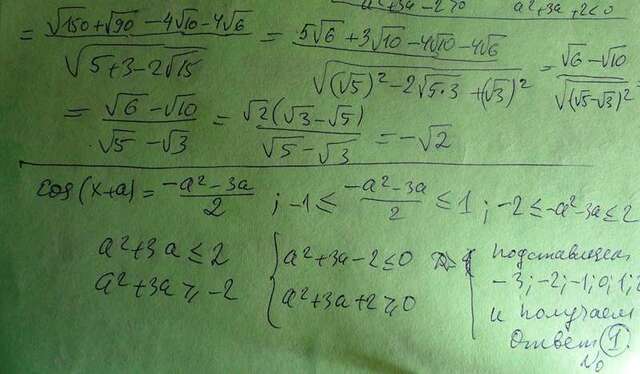 a²+3a-2≥0 a²+3a+2≤0
= (√150+√90-4√10-4√6)/√(5+3-2√15) = (5√6+3√10-4√10-4√6)/√((√5)²-2√5·3+(√3)²) = (√6-√10)/√((√5-√3)²
= (√6-√10)/(√5-√3) = √2(√3-√5)/(√5-√3) = -√2
cos(x+a) = (-a²-3a)/2 ; -1 ≤ (-a²-3a)/2 ≤ 1 ; -2≤-a²-3a≤2
a²+3a≤2 { a²+3a-2≤0
a²+3a≥-2 { a²+3a+2≥0
подставляем
-3; -2; -1; 0; 1;
и получаем
Ответ 1